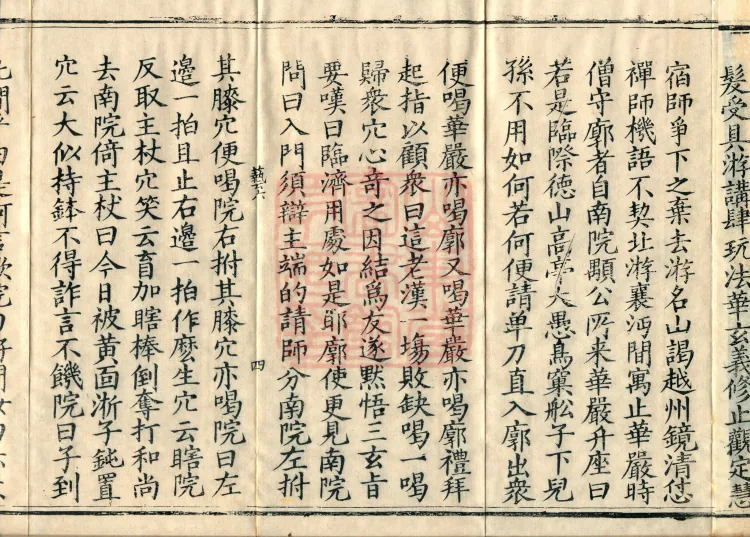 髮受具游講肆玩法華玄義修止觀定慧
宿師爭下之棄去游名山謁越州鏡清怤
禪師機語不契北游襄沔間寓止華嚴時
僧守廓者自南院顒公所来華嚴升座曰
若是臨際德山高亭大愚鳥窠舩子下兒
孫不用如何若何便請单刀直入廓出衆
便喝華嚴亦喝廓又喝華嚴亦喝廓禮拜
起指以顧衆曰這老漢一塲敗缺喝一喝
歸衆穴心奇之因結為友遂默悟三玄旨
要嘆曰臨濟用處如是耶廓使更見南院
問曰入門須辯主端的請師分南院左拊
藝六
四
其膝穴便喝院右拊其膝穴亦喝院曰左
邉一拍且止右邉一拍作麽生穴云瞎院
反取主杖穴笑云盲加瞎棒倒奪打和尚
去南院倚主杖曰今日被黄面淅子鈍置
穴云大似持鉢不得詐言不饑院曰子到